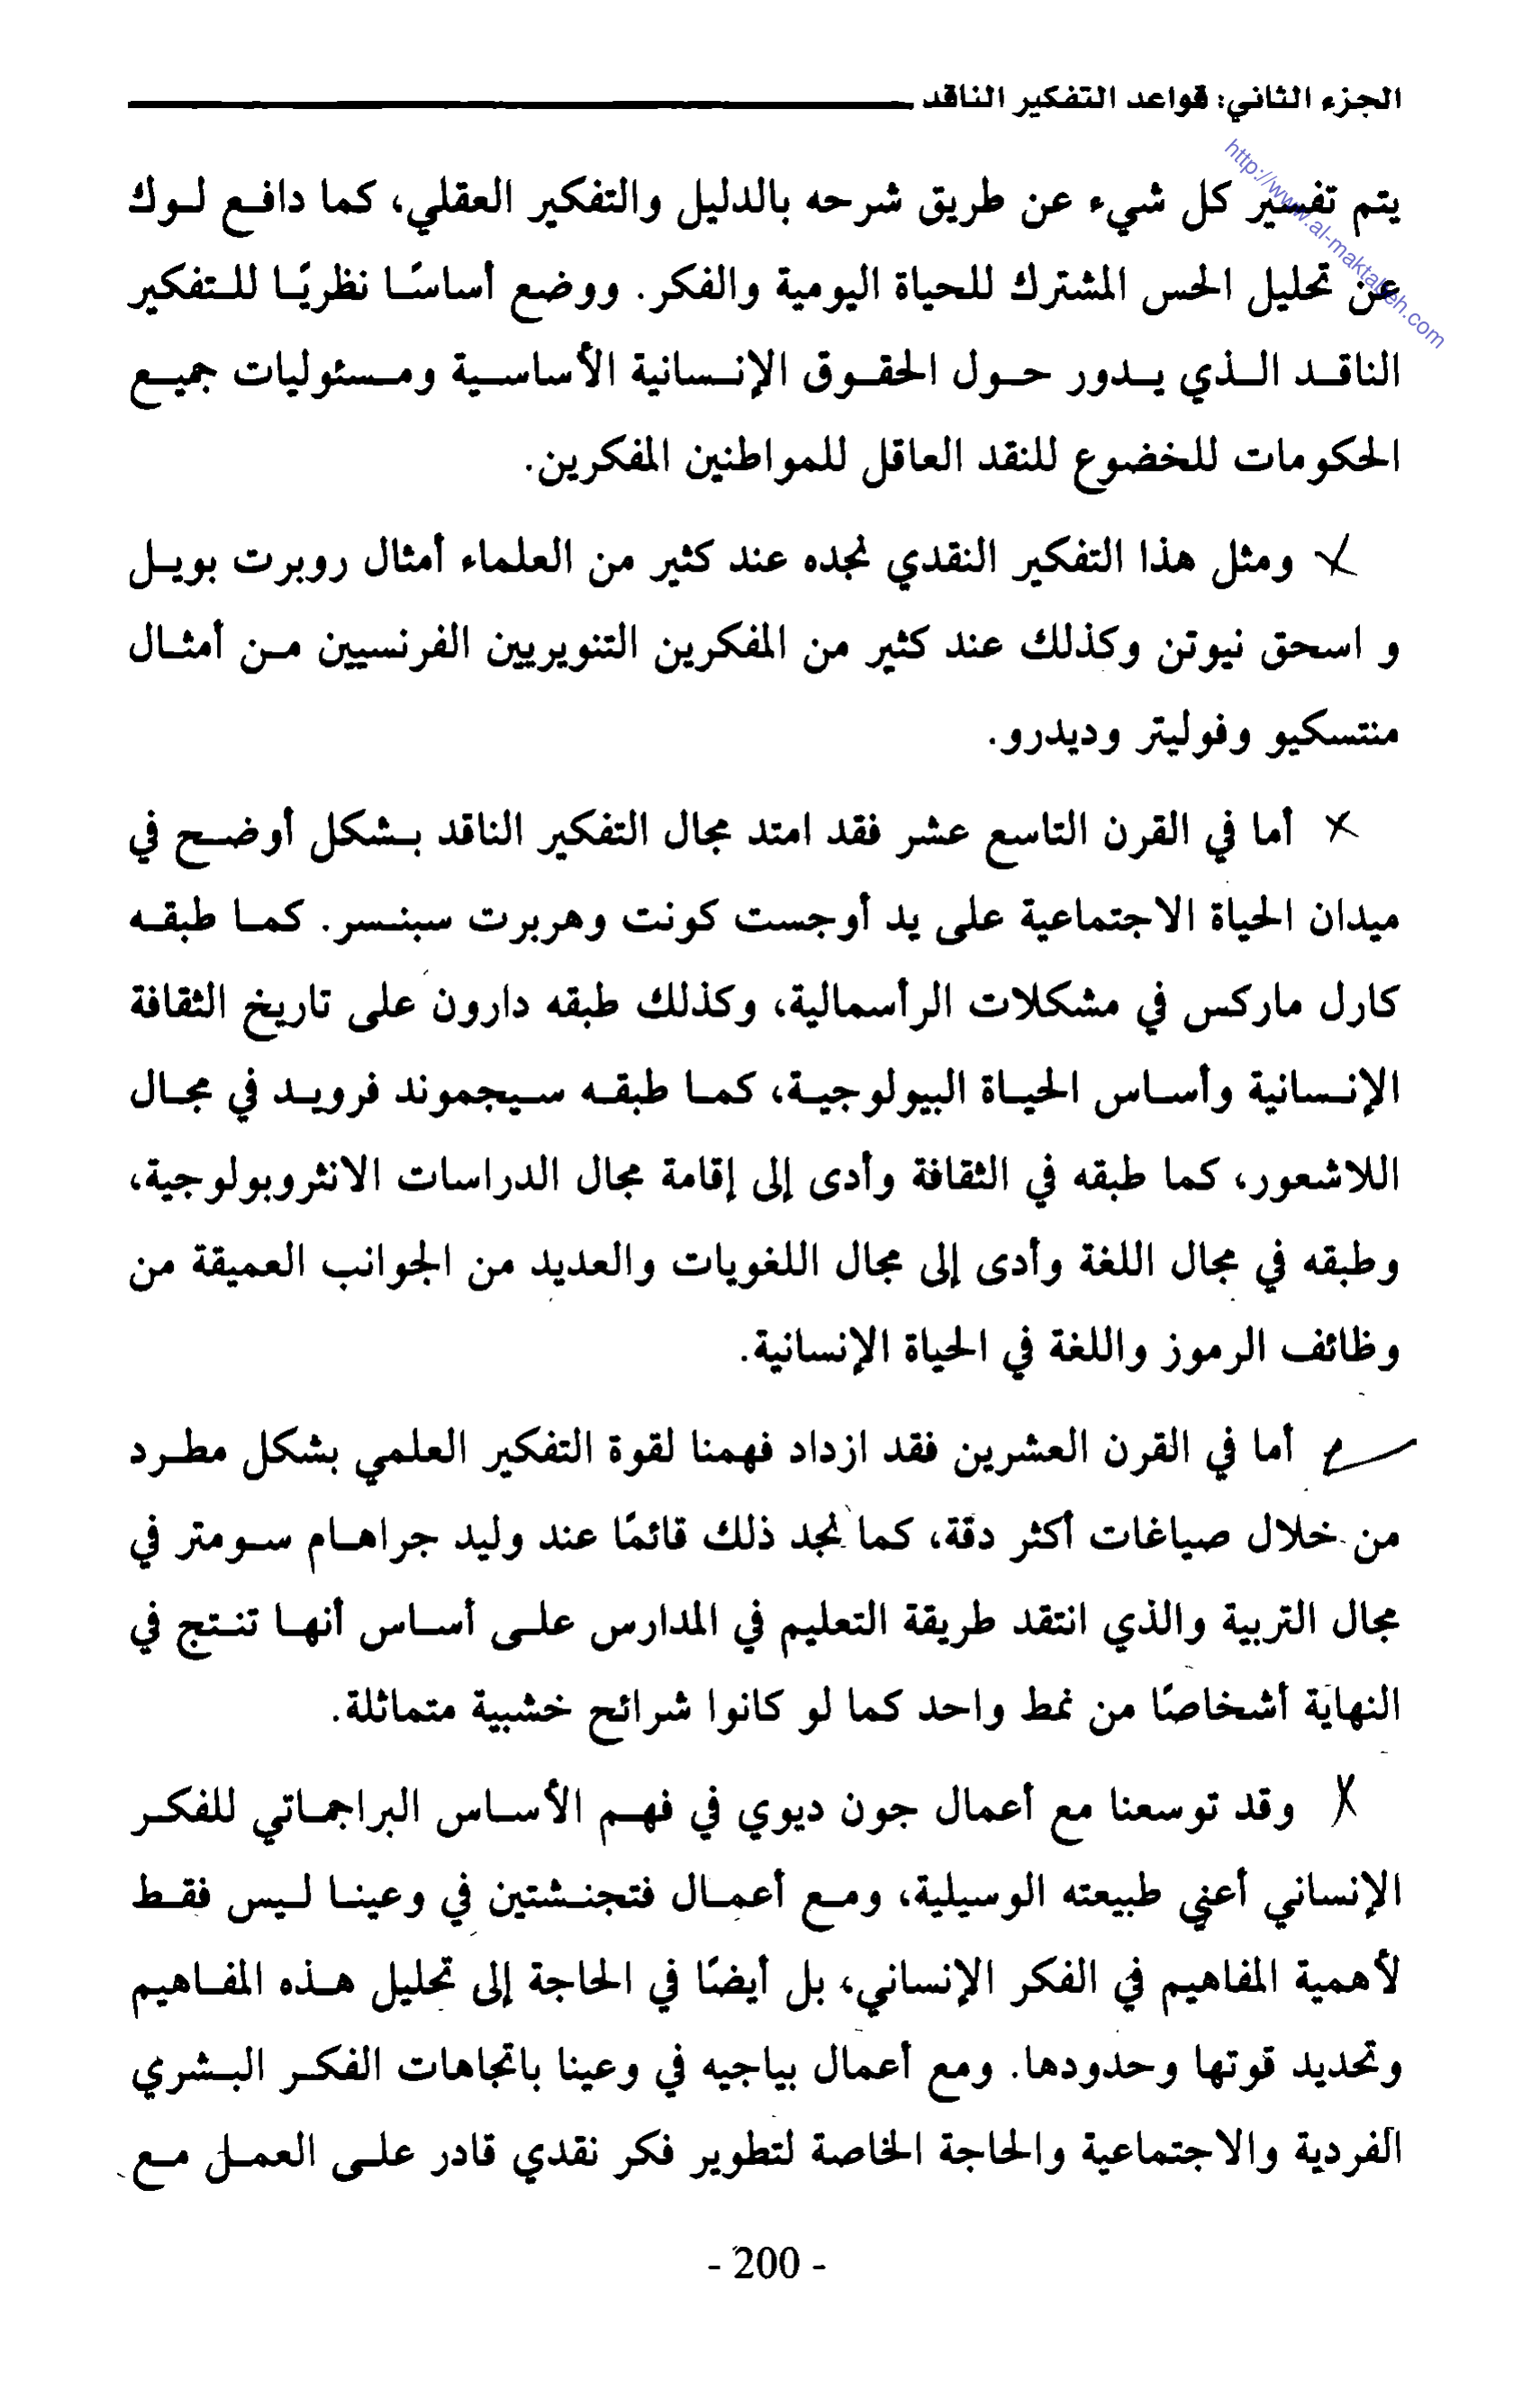 الجزء الثاني: قواعد التفكير الناقد
http://www.al-maktabeh.com
يتم تفسير كل شيء عن طريق شرحه بالدليل والتفكير العقلي، كما دافع لوك
عن تحليل الحس المشترك للحياة اليومية والفكر. ووضع أساسًا نظريًا للتفكير
الناقد الذي يدور حول الحقوق الإنسانية الأساسية ومسئوليات جميع
الحكومات للخضوع للنقد العاقل للمواطنين المفكرين.
ومثل هذا التفكير النقدي نجده عند كثير من العلماء أمثال روبرت بويل
و اسحق نيوتن وكذلك عند كثير من المفكرين التنويريين الفرنسيين من أمثال
منتسكيو وفوليتر وديدرو.
أما في القرن التاسع عشر فقد امتد مجال التفكير الناقد بشكل أوضح في
ميدان الحياة الاجتماعية على يد أوجست كونت وهربرت سبنسر. كما طبقه
كارل ماركس في مشكلات الرأسمالية، وكذلك طبقه دارون على تاريخ الثقافة
الإنسانية وأساس الحياة البيولوجية، كما طبقه سيجموند فرويد في مجال
اللاشعور، كما طبقه في الثقافة وأدى إلى إقامة مجال الدراسات الانثروبولوجية،
وطبقه في مجال اللغة وأدى إلى مجال اللغويات والعديد من الجوانب العميقة من
وظائف الرموز واللغة في الحياة الإنسانية.
أما في القرن العشرين فقد ازداد فهمنا لقوة التفكير العلمي بشكل مطرد
من خلال صياغات أكثر دقة، كما نجد ذلك قائمًا عند وليد جراهام سومتر في
مجال التربية والذي انتقد طريقة التعليم في المدارس على أساس أنها تنتج في
النهاية أشخاصًا من نمط واحد كما لو كانوا شرائح خشبية متماثلة.
وقد توسعنا مع أعمال جون ديوي في فهم الأساس البراجماتي للفكر
الإنساني أعني طبيعته الوسيلية، ومع أعمال فتجنشتين في وعينا ليس فقط
لأهمية المفاهيم في الفكر الإنساني، بل أيضًا في الحاجة إلى تحليل هذه المفاهيم
وتحديد قوتها وحدودها. ومع أعمال بياجيه في وعينا باتجاهات الفكر البشري
الفردية والاجتماعية والحاجة الخاصة لتطوير فكر نقدي قادر على العمل مع
- 200 -